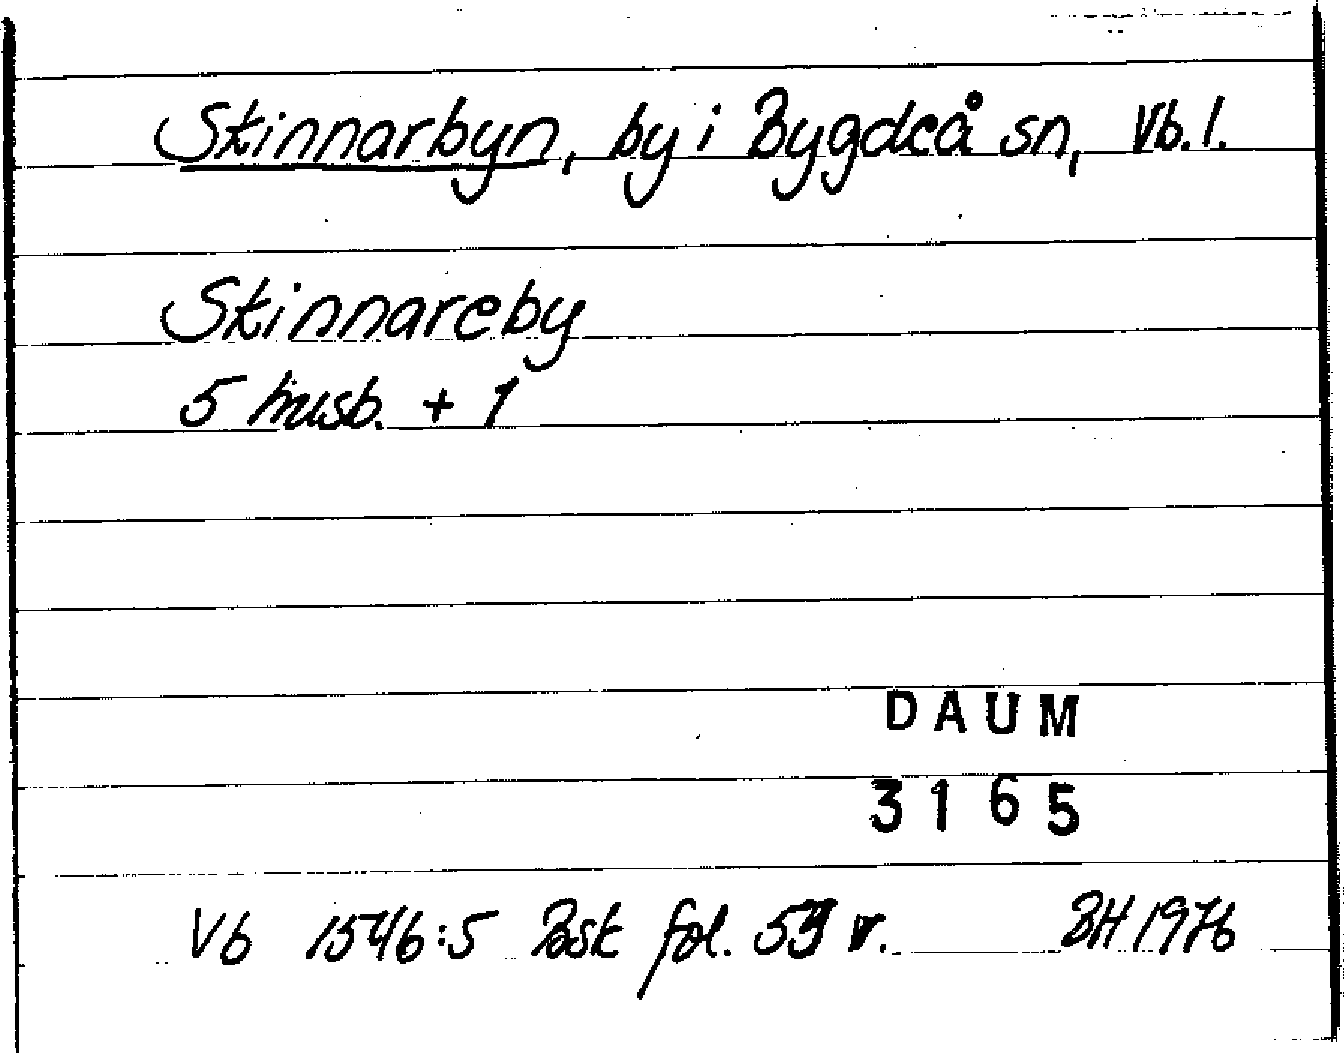 Skinnarbyn, by i Bygdeå sn, Vb. l.
Skinnareby
5 husb. + 1
DAUM
3165
Vb 1546:5 Bsk fol. 59 v. BH 1976